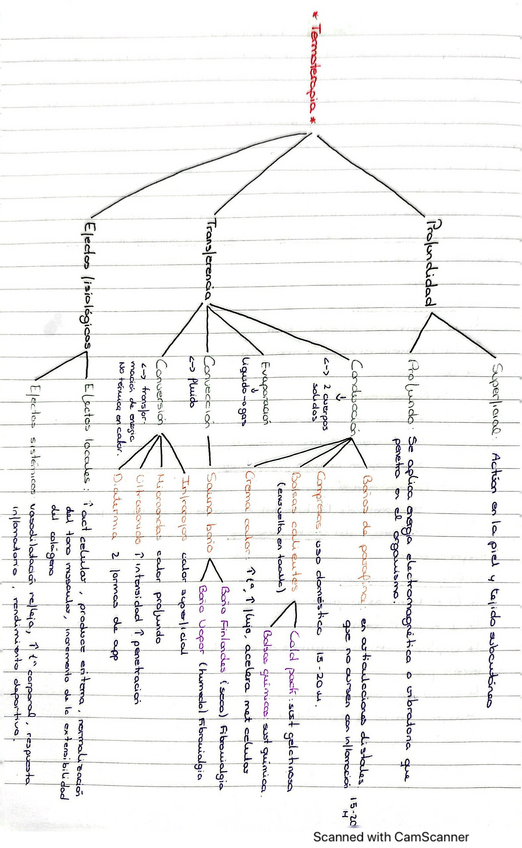 * Termoterapia *
Profundidad
Superficial: Acción en la piel y tejido subcutáneo
Profundo: Se aplica energía electromagnética o vibratoria que
penetra en el organismo.
Transferencia
Conducción
↳ 2 cuerpos
sólidos
Baños de parafina: en articulaciones distales 15-20
que no cursen con inflamación
Compresas uso doméstico 15-20 m.
Bolsas calientes
(envuelta en toalla)
Cold pack: sust gelatinosa
Bolsas químicas sust química.
Crema calor ↑ tª, ↑ flujo, acelera met celular
Evaporación
líquido → gas
Convección
↳ fluido
Sauna baño
Baño Finlandés (seco) Fibromialgia
Baño vapor (húmedo) Fibromialgia
Conversión
↳ transfor
mación de energía
No térmica en calor.
Infrarrojos calor superficial
Microondas calor profundo
Ultrasonido ↑ intensidad ↑ penetración
Diatermia 2 formas de app
Efectos fisiológicos
Efectos locales: ↑ act celular, produce eritema, normalización
del tono muscular, incremento de la extensibilidad
del colágeno
Efectos sistémicos vasodilatación refleja, ↑ tª corporal, respuesta
inflamatoria, rendimiento deportivo.
Scanned with CamScanner